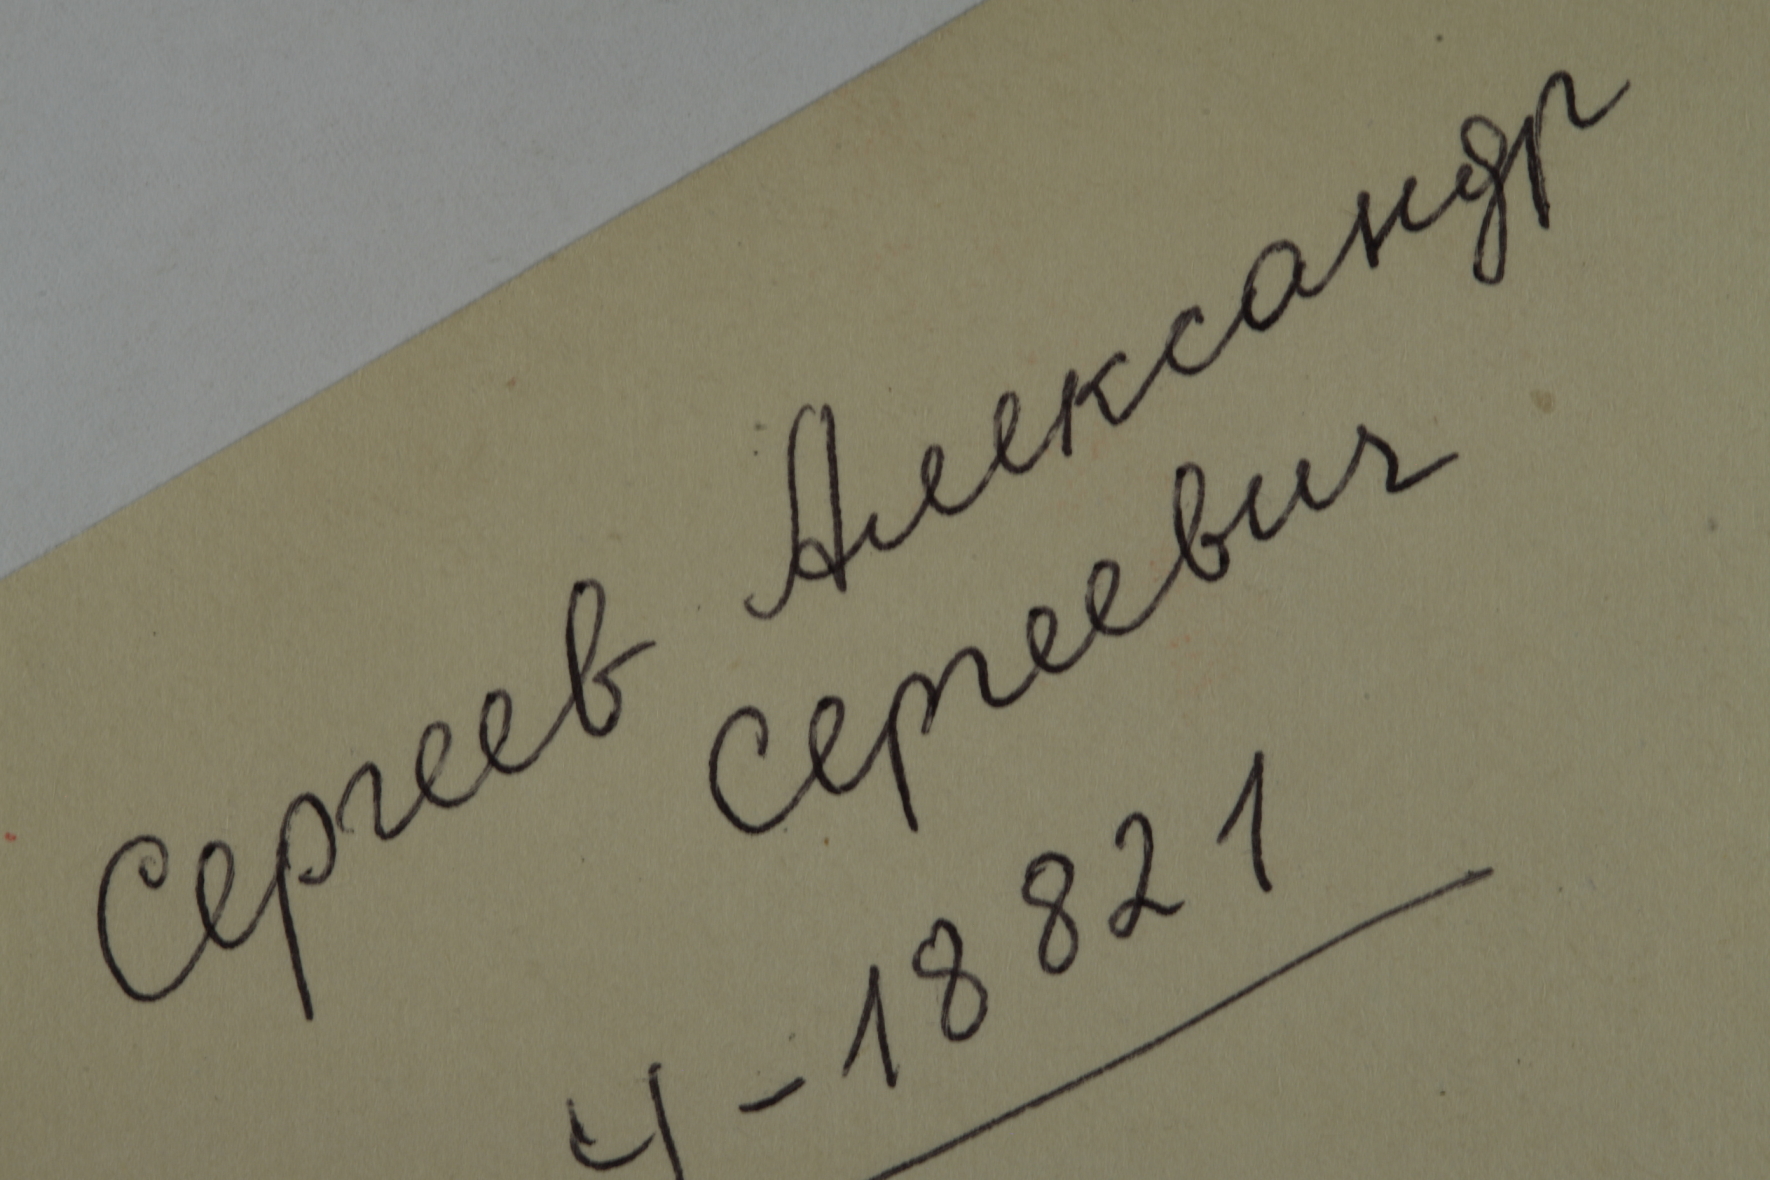 Сергеев Александр
Сергеевич
Ч-18821